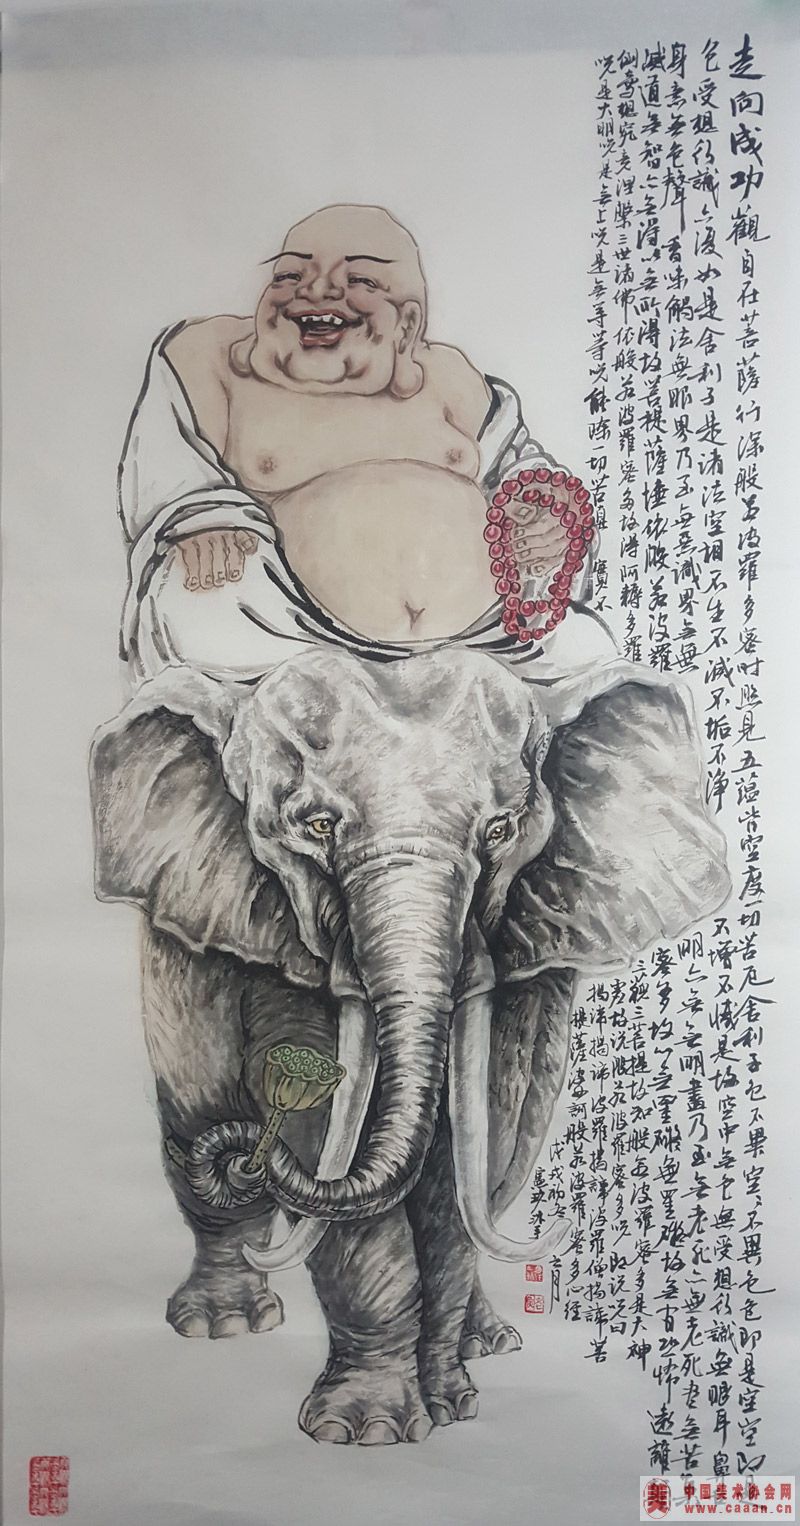 走向成功觀自在菩薩行深般若波羅多蜜时照見五蕴皆空度一切苦厄舍利子色不異空〻不異色色即是空空即是
色受想行識亦復如是舍利子是诸法空相不生不滅不垢不净
不增不减是故空中無色無受想行識無眼耳鼻舌
身意無色聲香味觸法無眼界乃至無無識界無無
明亦無無明盡乃至無老死亦無老死盡無苦集
滅道無智亦無得以無所得故菩提薩埵依般若波羅
蜜多故心無罣礙無罣礙故無有恐怖遠離
倒夢想究竟涅槃三世诸佛依般若波羅蜜多故得阿耨多羅
三藐三菩提故知般若波羅蜜多是大神
咒是大明咒是無上咒是無等等咒能除一切苦真實不
虚故说般若波羅蜜多咒即说咒曰
揭諦揭諦波羅揭諦波羅僧揭諦菩
提薩婆訶般若波羅蜜多心經
戊戌初冬
中国美术协会网
www.caaan.cn